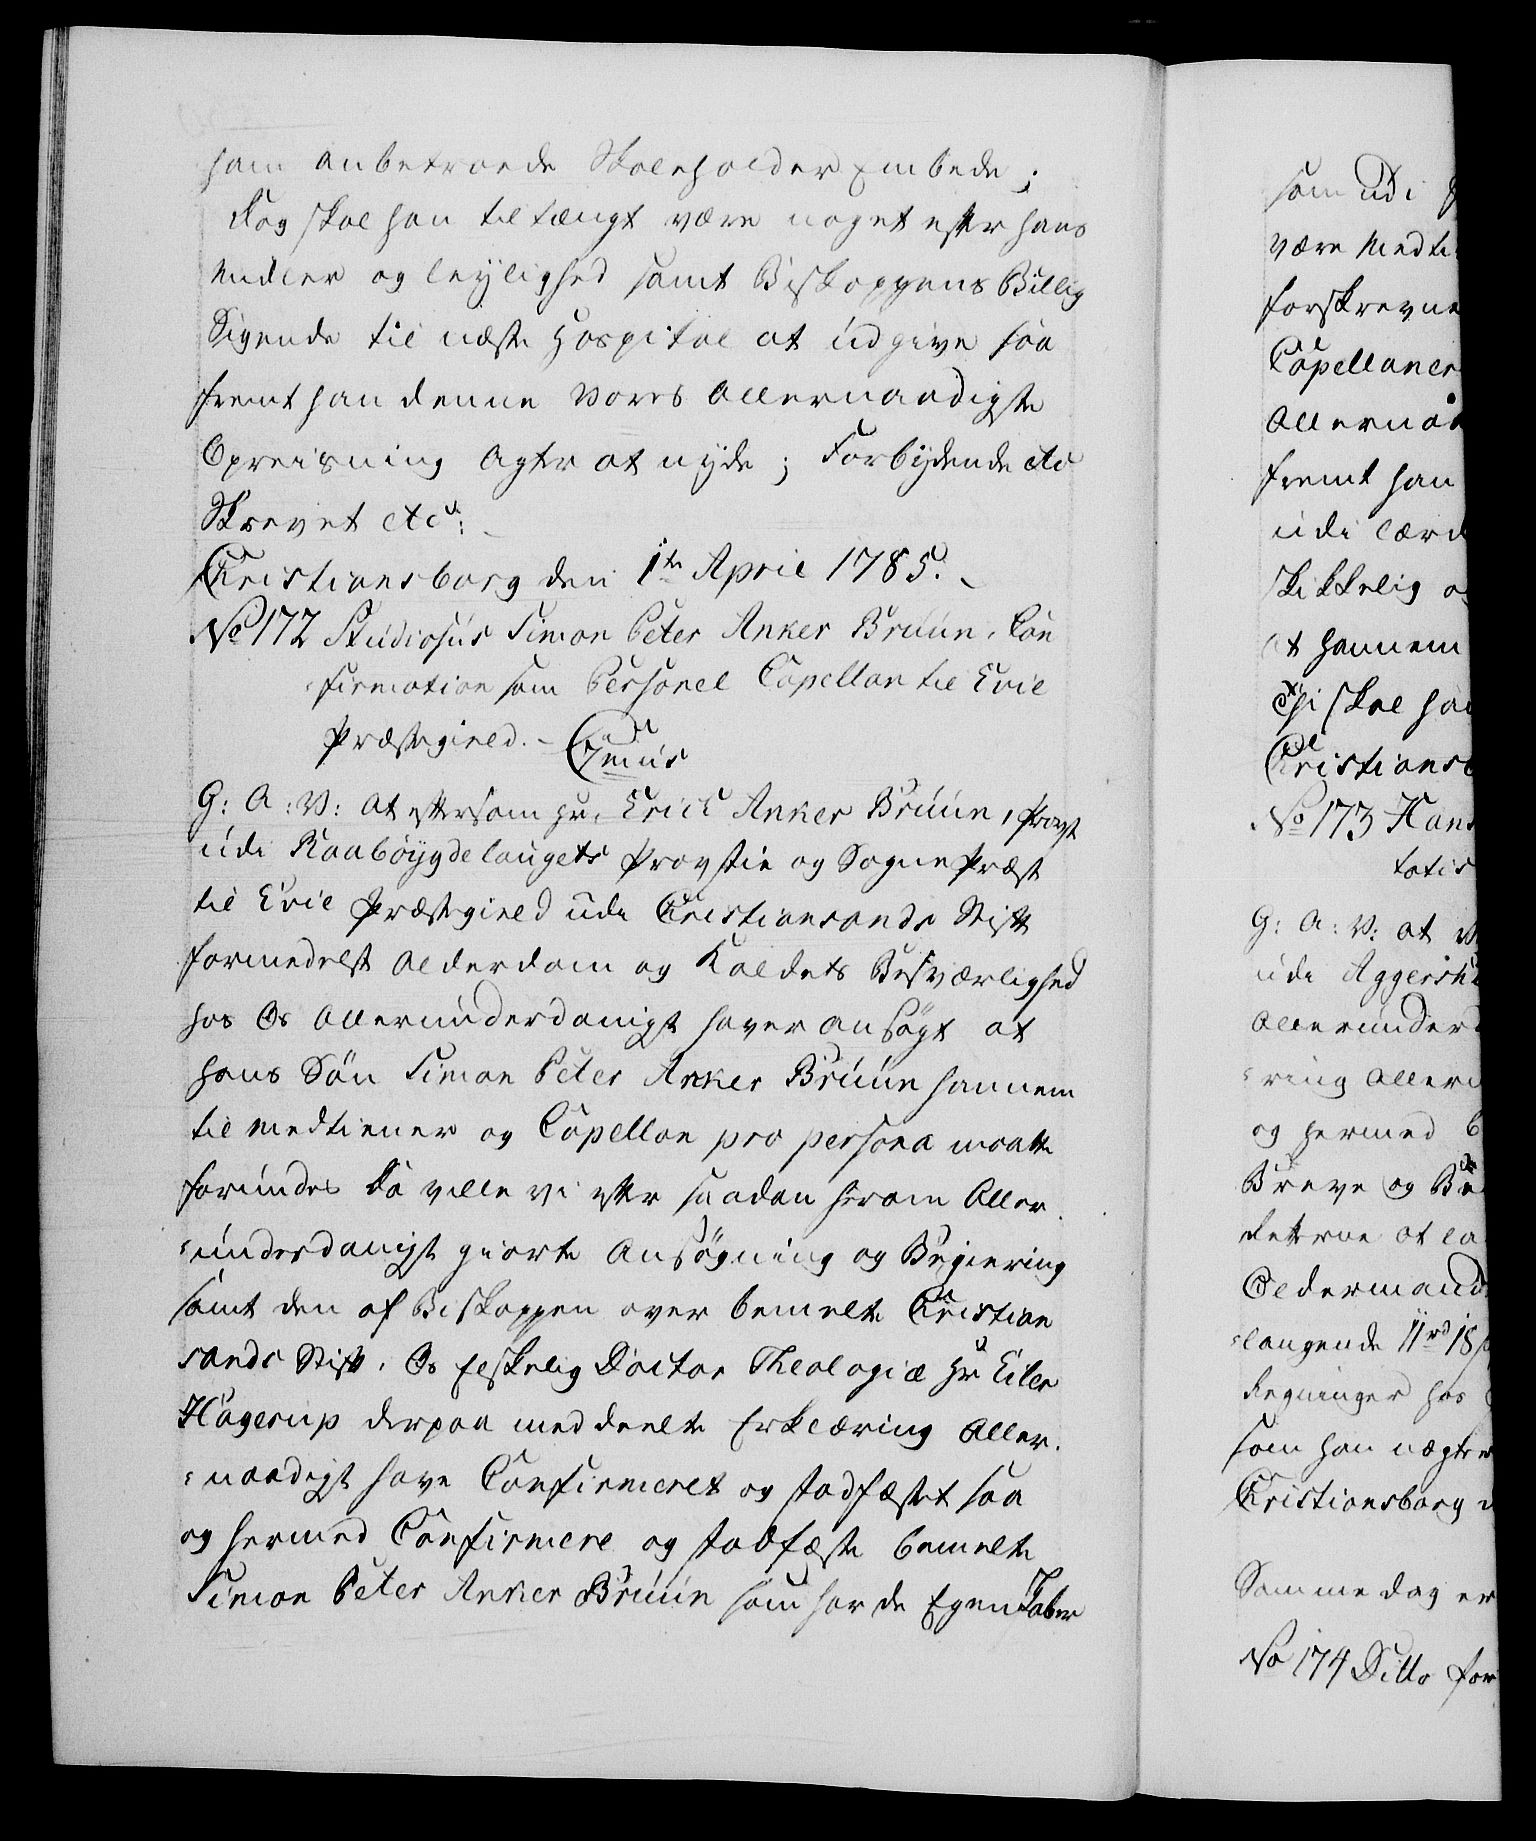 ham anbetroede Skoleholder Embede;
dog skal han tiltængt være noget efter hans
Midler og leylighed samt Biskoppens Billig
Sigende til næste Hospital at udgive saa
fremt han denne Vores Allernaadigste
Opreisning Agter at nyde; Forbydende etc
Skrevet etc:
Christiansborg den 1te April 1785.
No 172 Studiosus Simon Peter Anker Bruun, Con
firmation som Personel Capellan til Evie
Præstegield. - C 7mus
G: A: V: At eftersom Hr. Erich Anker Bruun, Provst
udi Raabøygdelaugets Provstie og Sogne Præst
til Evie Præstegield udi Christiansands Stift
formedelst Alderdom og Kaldets Besværlighed
hos Os Allerunderdanigst haver ansøgt at
hans Søn Simon Peter Anker Bruun hannem
til Medtiener og Capellan pro persona maatte
forundes Da ville vi efter saadan herom Aller
=underdanigst giorte Ansøgning og Begiering
samt den af Biskoppen over bemelte Christian
sands Stift, Os Elskelig Doctor Theologiæ Hr Eiler
Hagerup derpaa meddeelte Erklæring Aller
=naadigst have Confirmeret og stadfæstet saa
og hermed Confirmere og stadfæste bemelte
Simon Peter Anker Bruun som har de Egenskaber
som udi
være Medti
forskrevne
Capellaner
Allernaa
fremt han
udi lærd
skikkelig o
at hannem
Thi skal ha
Christiansb
No 173 Hans
totis
G: A: V: at V
udi Aggersh
Allerunderd
=ring Allern
og hermed b
Breve og Be
detterne at la
Oldermand
=langende 11rd 18
Regninger hos
som han nægter
Christiansborg d
Samme dag er
No 174 Ditto for